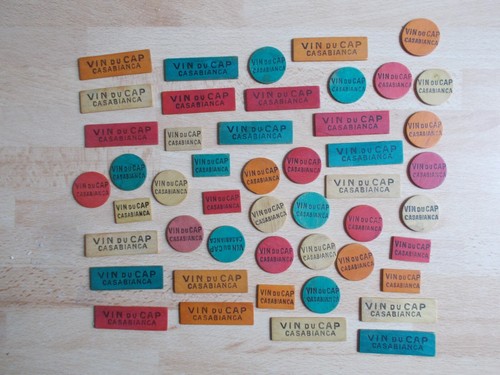 VIN DU CAP
CASABIANCA
VIN DU CAP
CASABIANCA
VIN DU CAP
CASABIANCA
VIN DU CAP
CASABIANCA
VIN DU CAP
CASABIANCA
VIN DU CAP
CASABIANCA
VIN DU CAP
CASABIANCA
VIN DU CAP
CASABIANCA
VIN DU CAP
CASABIANCA
VIN DU CAP
CASABIANCA
VIN DU CAP
CASABIANCA
VIN DU CAP
CASABIANCA
VIN DU CAP
CASABIANCA
VIN DU CAP
CASABIANCA
VIN DU CAP
CASABIANCA
VIN DU CAP
CASABIANCA
VIN DU CAP
CASABIANCA
VIN DU CAP
CASABIANCA
VIN DU CAP
CASABIANCA
VIN DU CAP
CASABIANCA
VIN DU CAP
CASABIANCA
VIN DU CAP
CASABIANCA
VIN DU CAP
CASABIANCA
VIN DU CAP
CASABIANCA
VIN DU CAP
CASABIANCA
VIN DU CAP
CASABIANCA
VIN DU CAP
CASABIANCA
VIN DU CAP
CASABIANCA
VIN DU CAP
CASABIANCA
VIN DU CAP
CASABIANCA
VIN DU CAP
CASABIANCA
VIN DU CAP
CASABIANCA
VIN DU CAP
CASABIANCA
VIN DU CAP
CASABIANCA
VIN DU CAP
CASABIANCA
VIN DU CAP
CASABIANCA
VIN DU CAP
CASABIANCA
VIN DU CAP
CASABIANCA
VIN DU CAP
CASABIANCA
VIN DU CAP
CASABIANCA
VIN DU CAP
CASABIANCA
VIN DU CAP
CASABIANCA
VIN DU CAP
CASABIANCA
VIN DU CAP
CASABIANCA
VIN DU CAP
CASABIANCA
VIN DU CAP
CASABIANCA
VIN DU CAP
CASABIANCA
VIN DU CAP
CASABIANCA